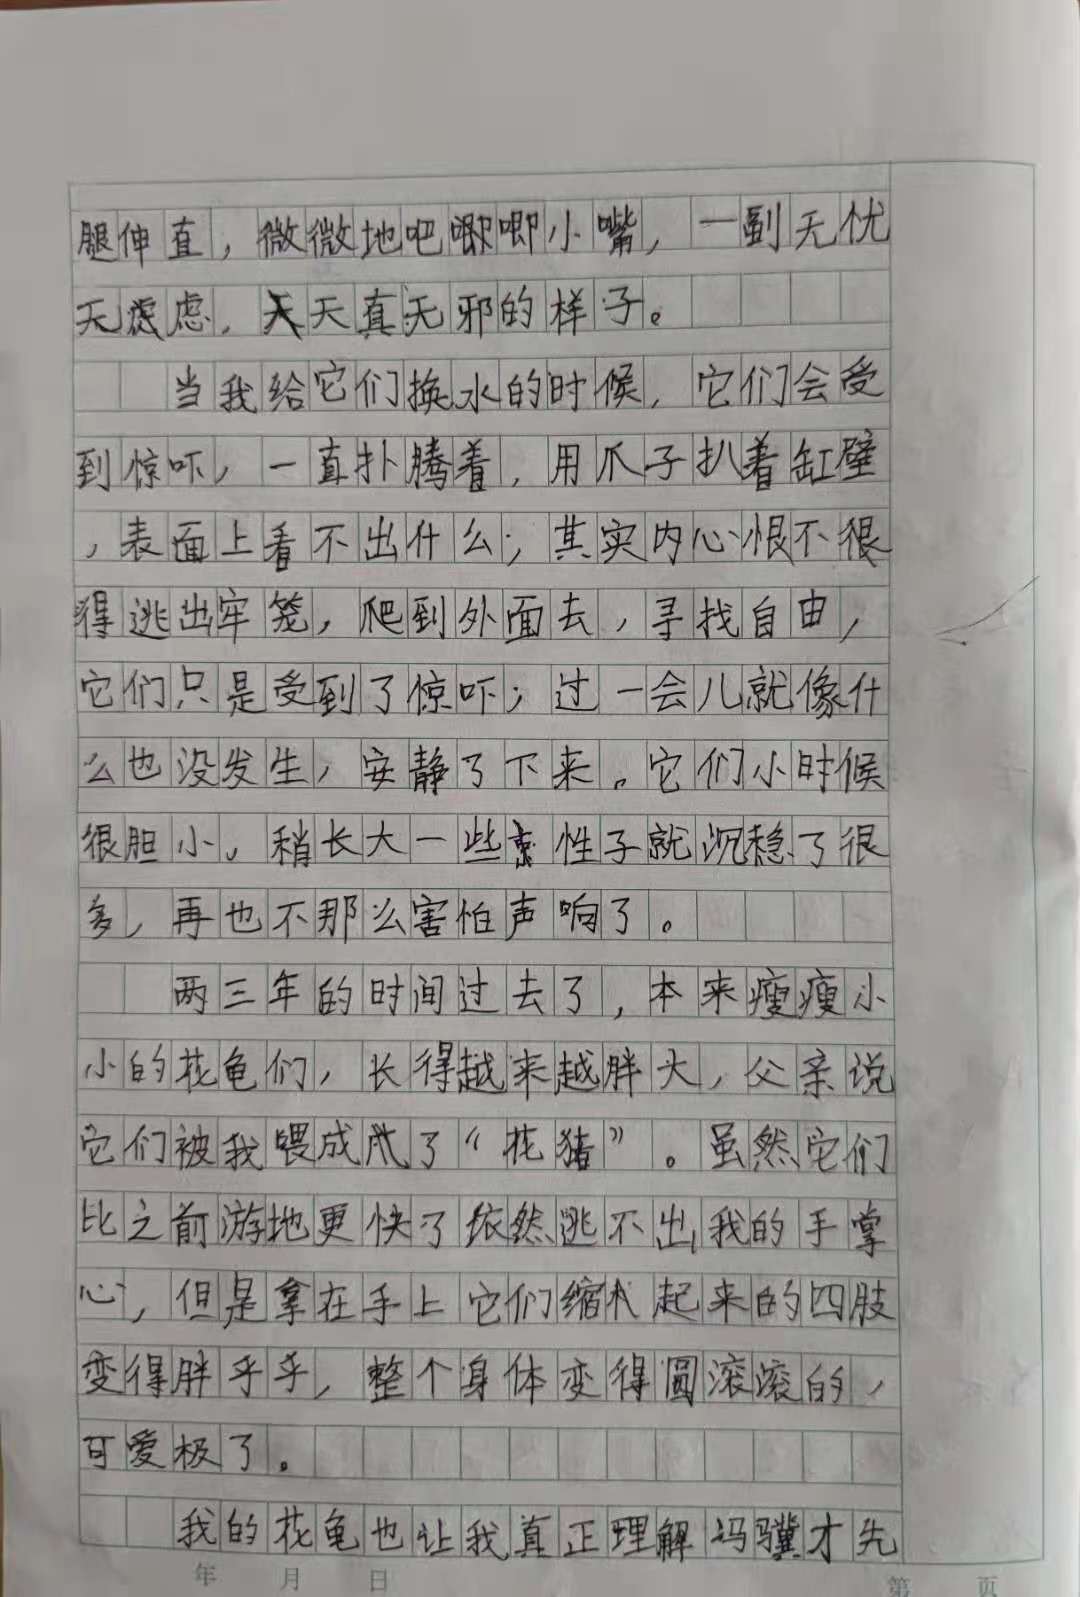 腿伸直，微微地吧唧唧小嘴，一副无忧
无虑虑，天天真无邪的样子。
当我给它们换水的时候，它们会受
到惊吓，一直扑腾着，用爪子扒着缸壁
，表面上看不出什么，其实内心恨不很
得逃出牢笼，爬到外面去，寻找自由，
它们只是受到了惊吓，过一会儿就像什
么也没发生，安静了下来。它们小时候
很胆小，稍长大一些 性子就沉稳了很
多，再也不那么害怕声响了。
两三年的时间过去了，本来瘦瘦小
小的花龟们，长得越来越胖大，父亲说
它们被我喂成 了“花猪”。虽然它们
比之前游地更快了依然逃不出我的手掌
心，但是拿在手上它们缩 起来的四肢
变得胖乎乎，整个身体变得圆滚滚的，
可爱极了。
我的花龟也让我真正理解冯骥才先
年 月 日
第 页